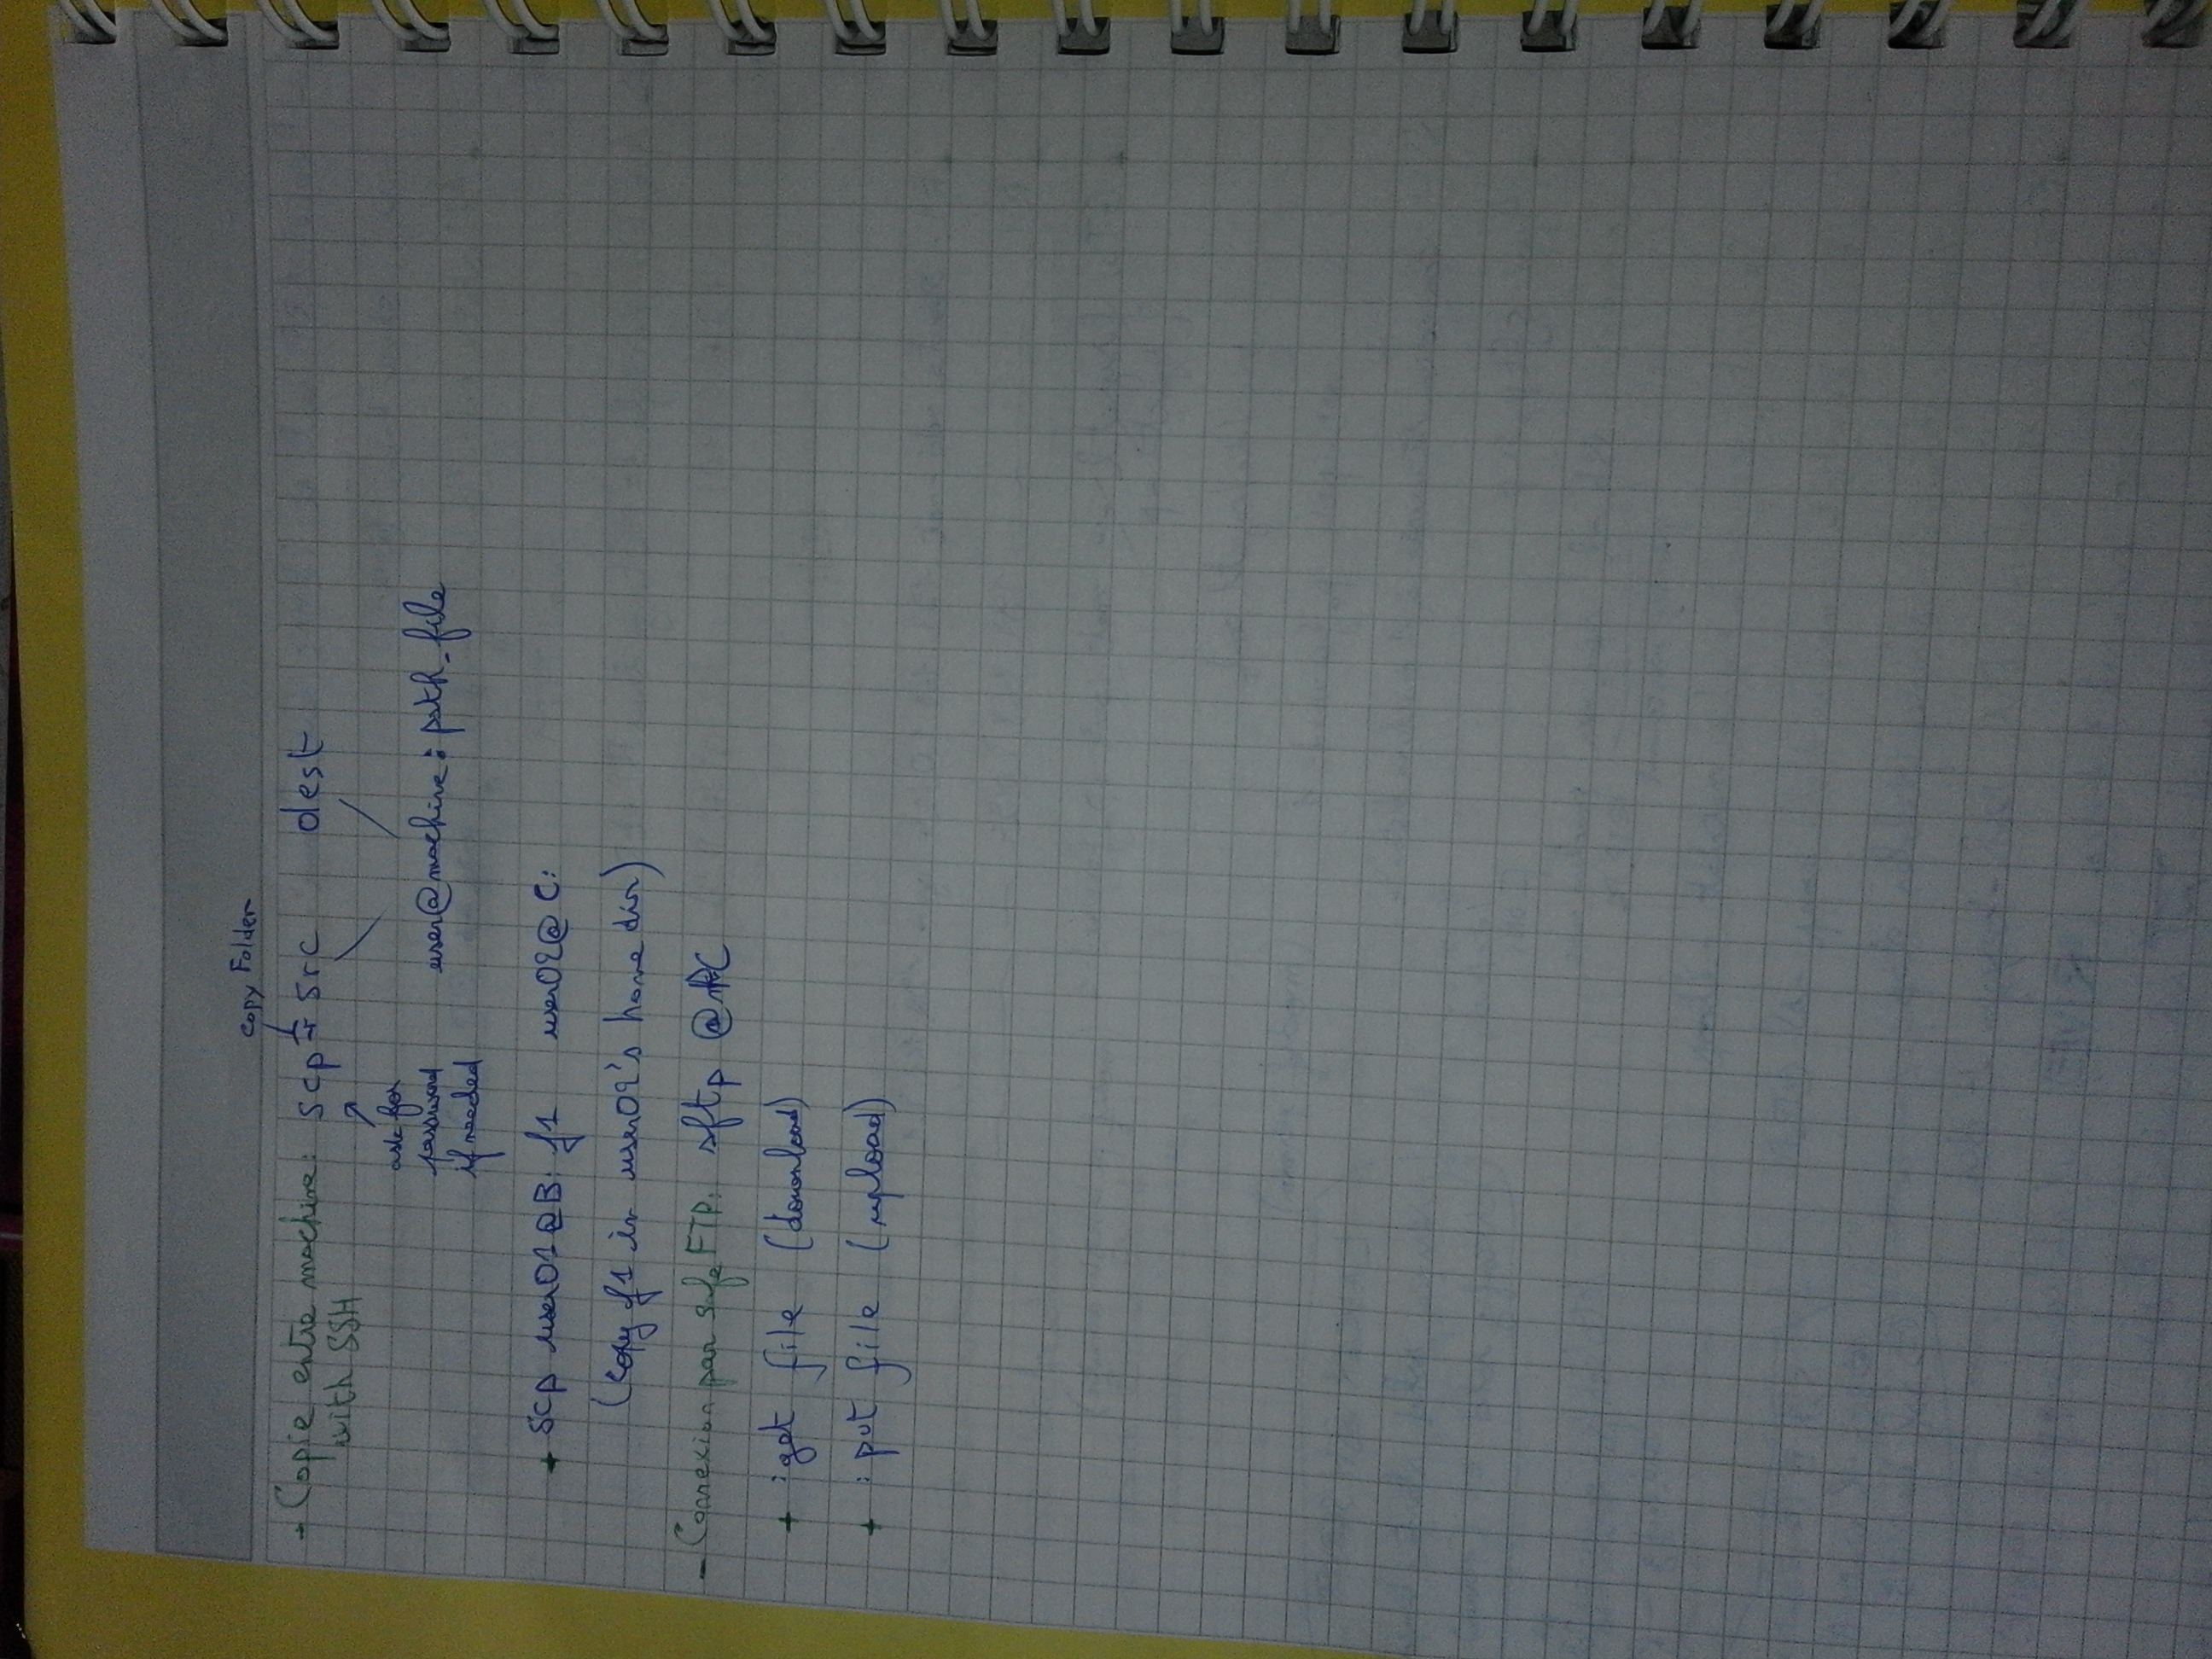 copy Folder
→ Copie entre machine: scp -r src dest
with SSH
ask for
password
if needed
user@machine: path_file
+ scp user01@B: f1 user02@C:
(copy f1 in user02's home dir)
- Connexion par safe FTP: sftp
+ :get file (download)
+ :put file (upload)